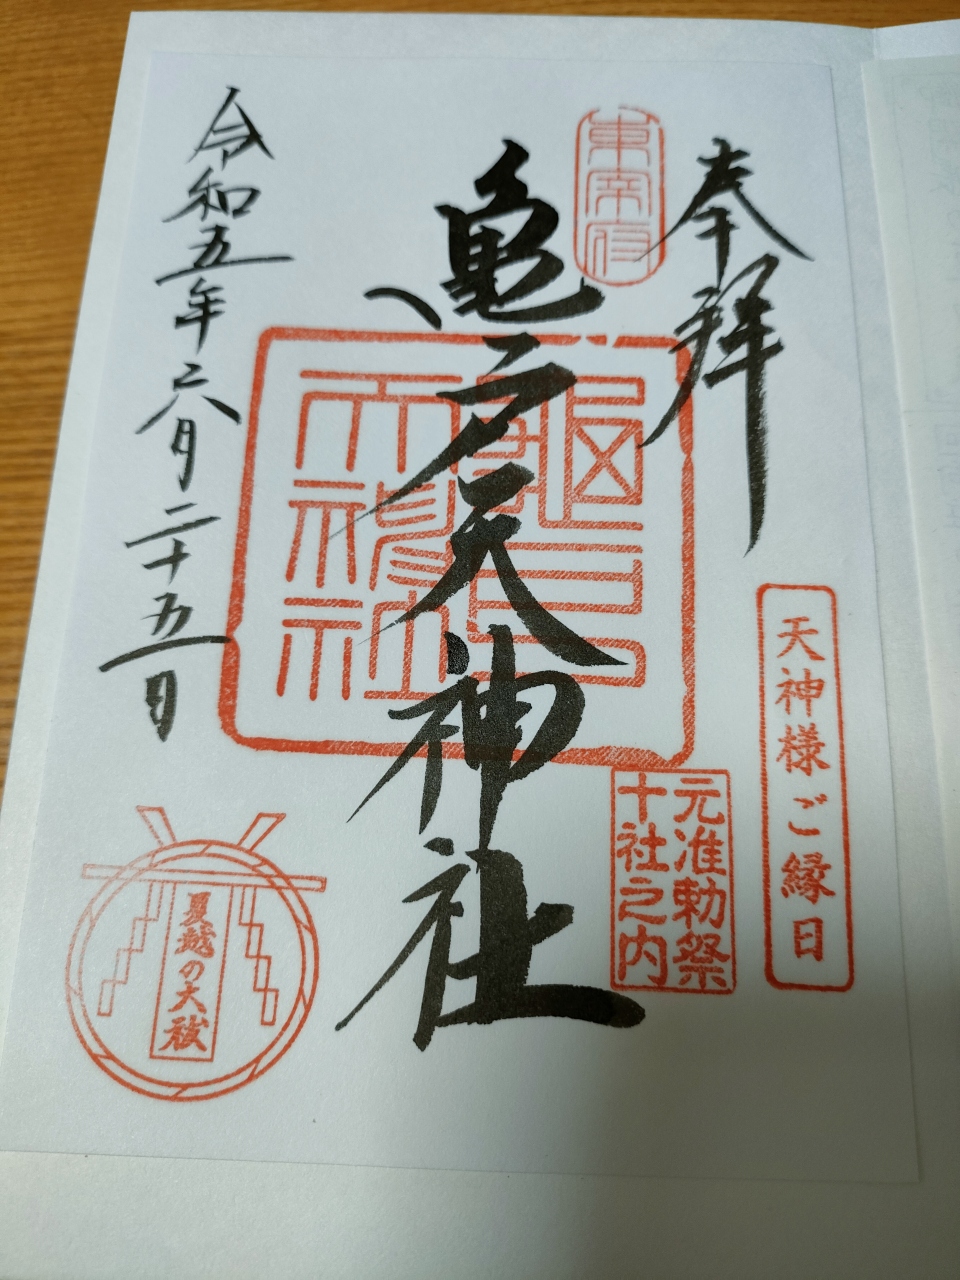 奉拝
天神様ご縁日
東宰府
元准勅祭
十社之内
亀戸天神社
龜戸
天神社
令和五年六月二十五日
夏越の大祓